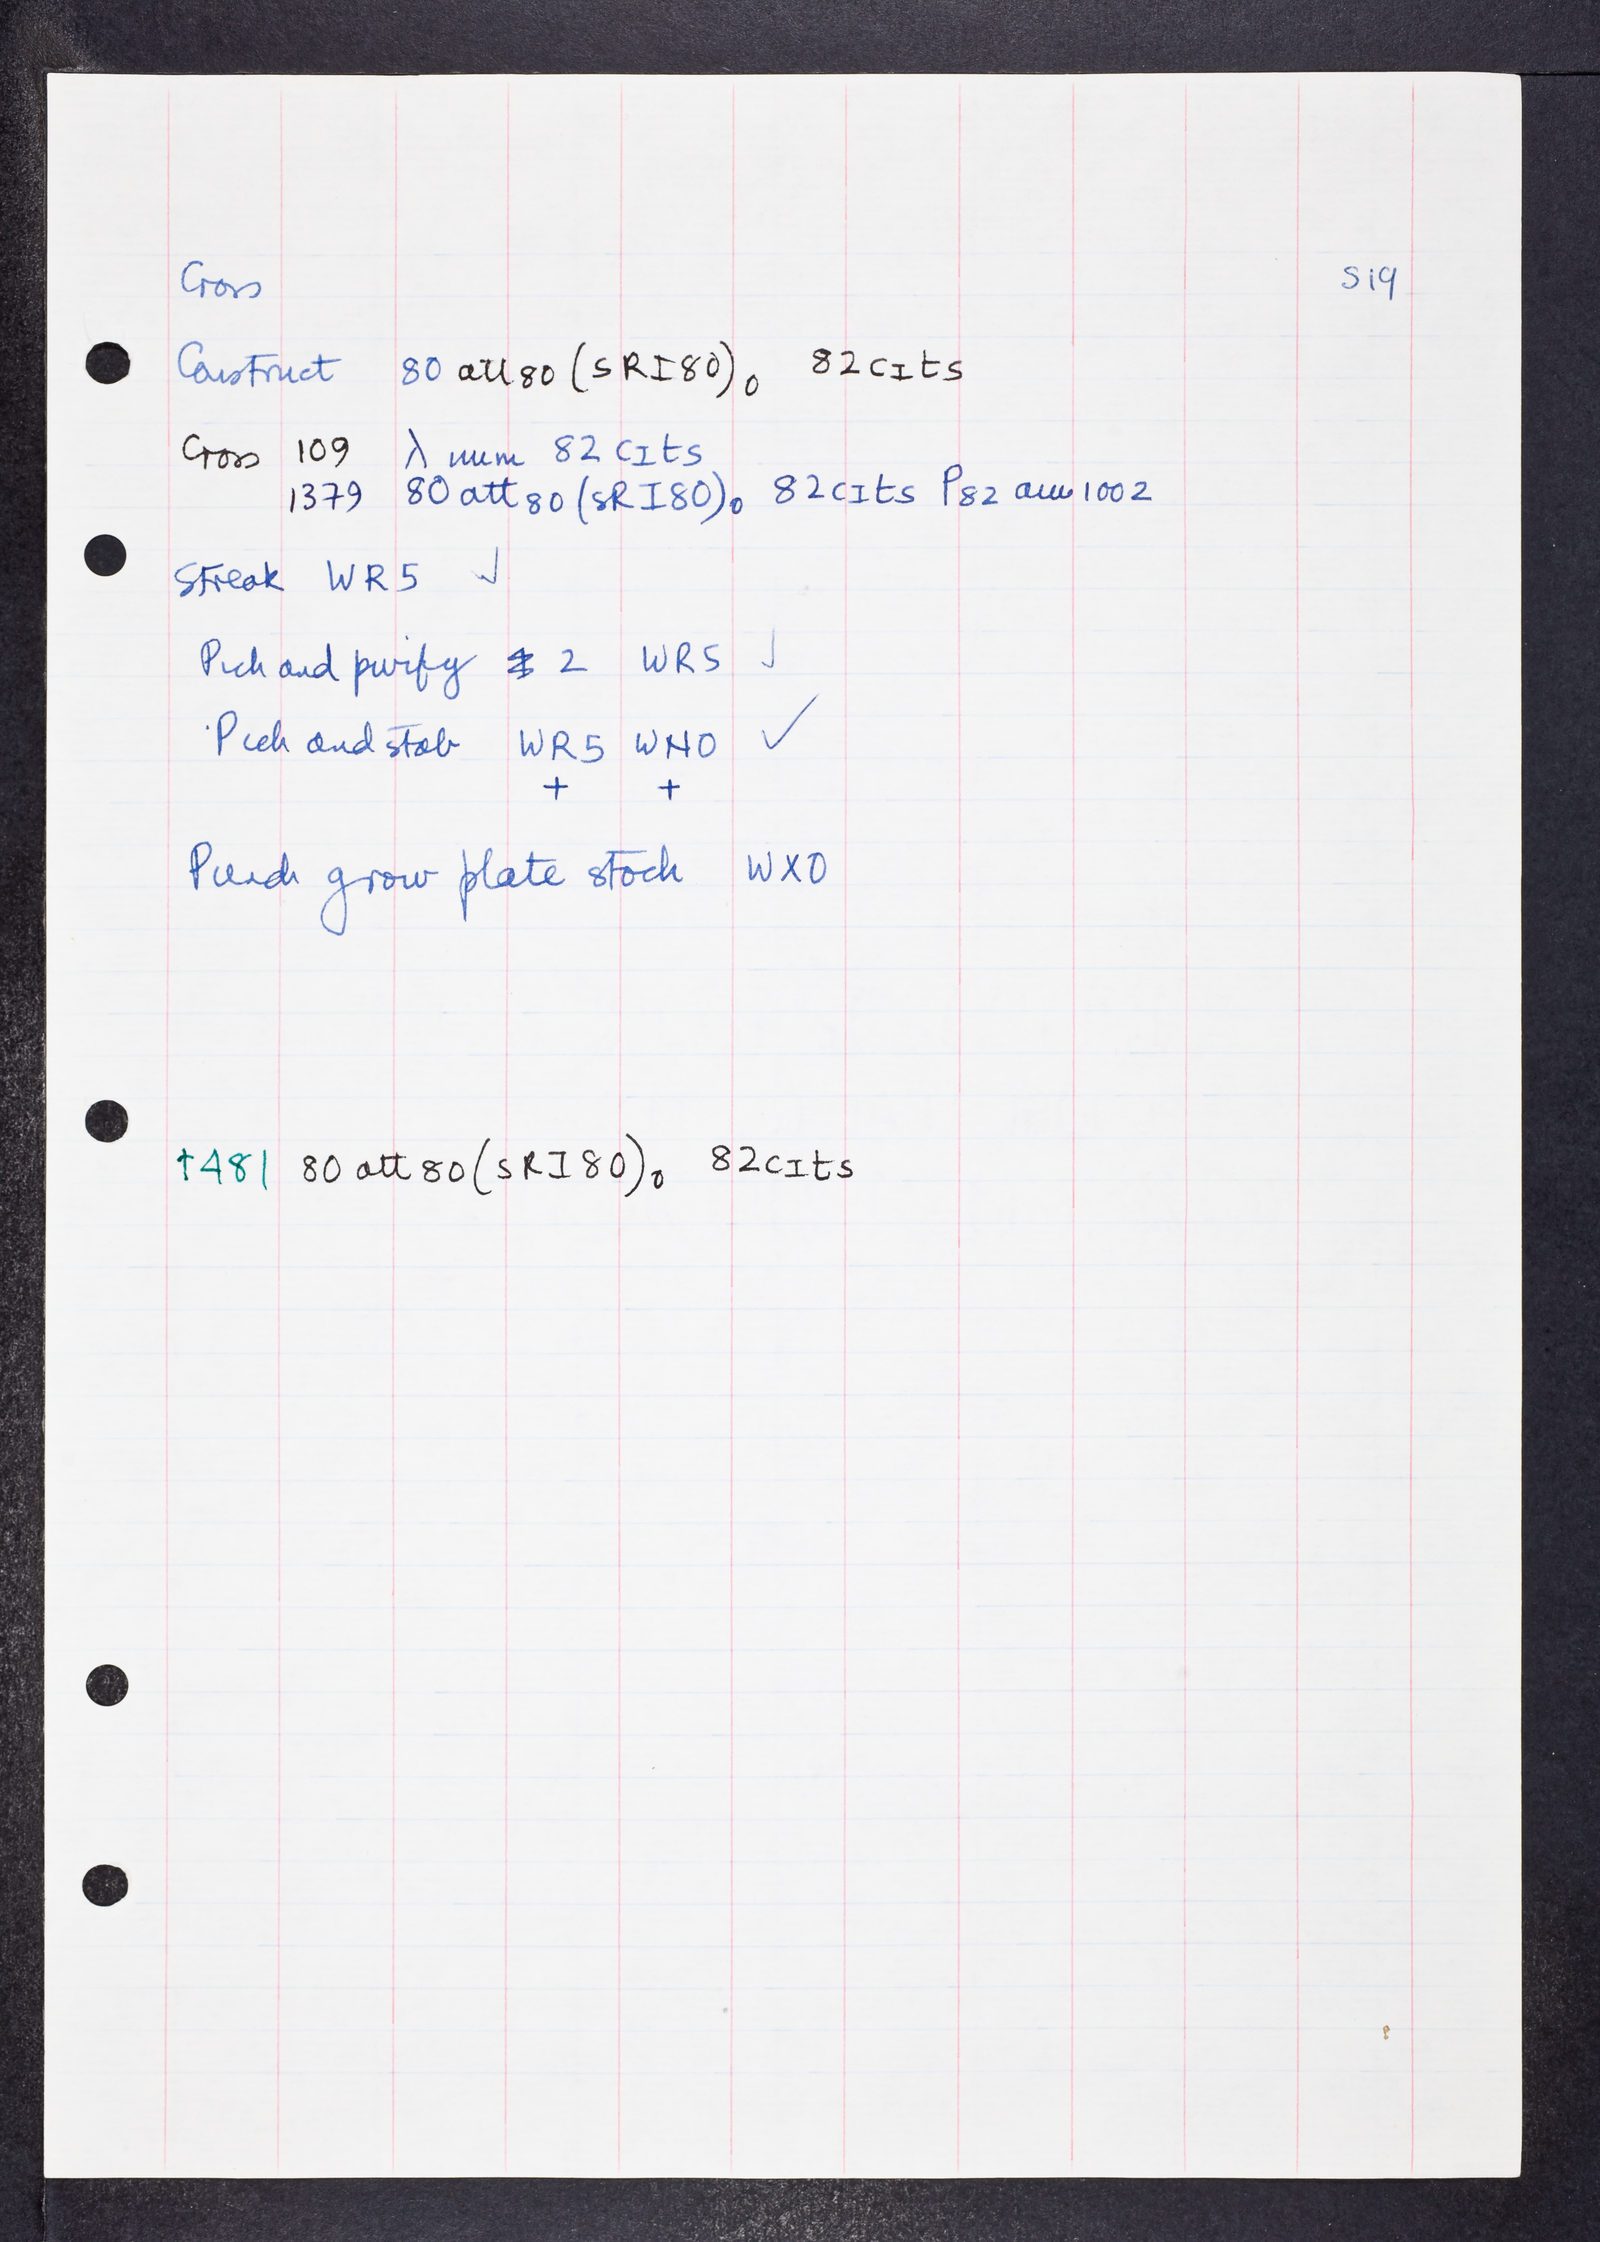 Cross
S19
Construct 80 att80 (sRI80)₀ 82cIts
Cross 109 λ imm 82cIts
1379 80 att80 (sRI80)₀ 82cIts P82 am1002
Streak WR5 ✓
Pick and purify 2 WR5 ✓
Pick and stab WR5 WNO ✓
+ +
Pick grow plate stock WXO
†481 80 att80 (sRI80)₀ 82cIts